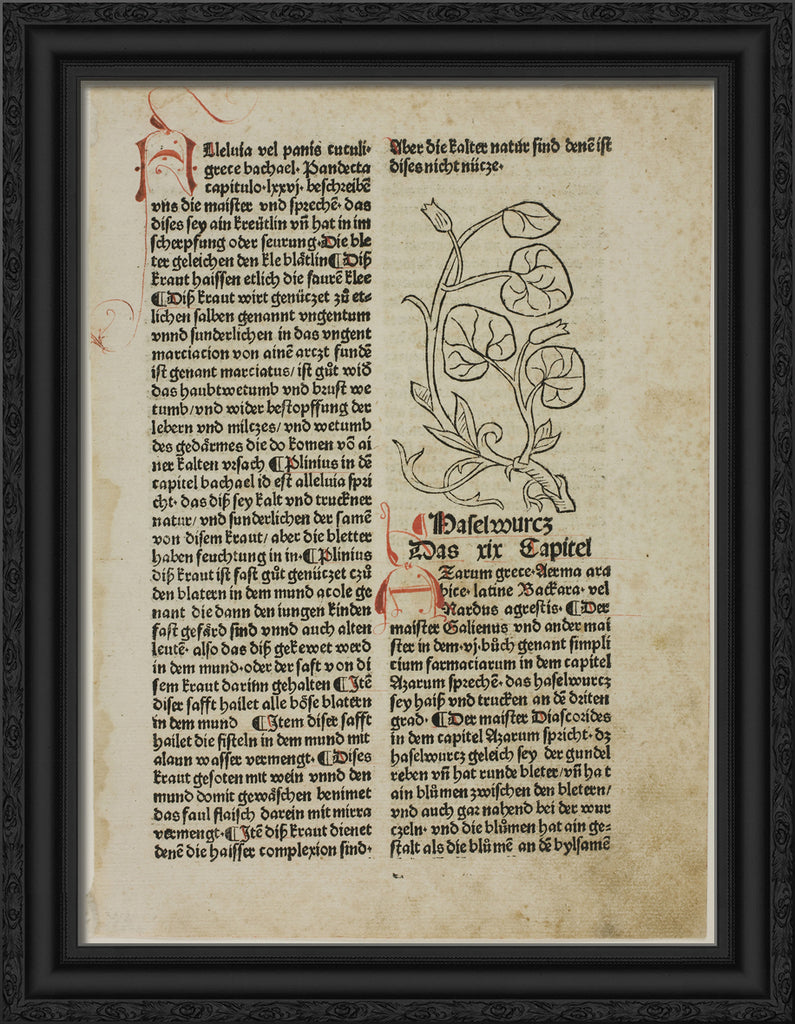 Alleluia vel panis cuculi·
grece bachael· Pandecta
capitulo·lxxvj· beschreibẽ
vns die maister vnd sprechẽ· das
dises sey ain kreütlin vñ hat in im
scherpfung oder seurung·Die ble
ter geleichen den kle blätlin¶Diß
kraut haissen etlich die saurẽ klee
¶Diß kraut wirt genüczet zů et⸗
lichen salben genannt vngentum
vnnd sunderlichen in das vngent
marciacion von ainẽ arczt fundẽ
ist genant marciatus/ ist gůt wid
das haubtwetumb vnd brust we
tumb/vnd wider bestopffung der
lebern vnd milczes/ vnd wetumb
des gedärmes die do komen võ ai
ner kalten vrsach ¶Plinius in dẽ
capitel bachael id est alleluia spri
cht· das diß sey kalt vnd truckner
natur/ vnd sunderlichen der samẽ
von disem kraut/ aber die bletter
haben feuchtung in in·¶Plinius
diß kraut ist fast gůt genüczet czů
den blatern in dem mund acole ge
nant die dann den iungen kinden
fast gefärd sind vnnd auch alten
leutẽ· also das diß gekewet werd
in dem mund·oder der saft von di
sem kraut darinn gehalten ¶Jtẽ
diser safft hailet alle böse blatern
in dem mund ¶Jtem diser safft
hailet die fisteln in dem mund mit
alaun wasser vermengt·¶Dises
kraut gesoten mit wein vnnd den
mund domit gewäschen benimet
das faul flaisch darein mit mirra
vermengt·¶Jtẽ diß kraut dienet
denẽ die haisser complexion sind·
Aber die kalter natúr sind denẽ ist
dises nicht nücze·
¶Haselwurcz
Das xix Capitel
Azarum grece·Aerma ara
bice· latine Backara· vel
Nardus agrestis· ¶Der
maister Galienus vnd ander mai
ster in dem·vj·bůch genant simpli
cium farmaciarum in dem capitel
Azarum sprechẽ· das haselwurcz
sey haiß vnd trucken an dẽ driten
grad· ¶Der maister Diascorides
in dem capitel Azarum spricht· dz
haselwurcz geleich sey der gundel
reben vñ hat runde bleter/vñ ha t
ain blůmen zwischen den bletern/
vnd auch gar nahend bei der wur
czeln· vnd die blůmen hat ain ge⸗
stalt als die blůmẽ an dẽ bylsamẽ